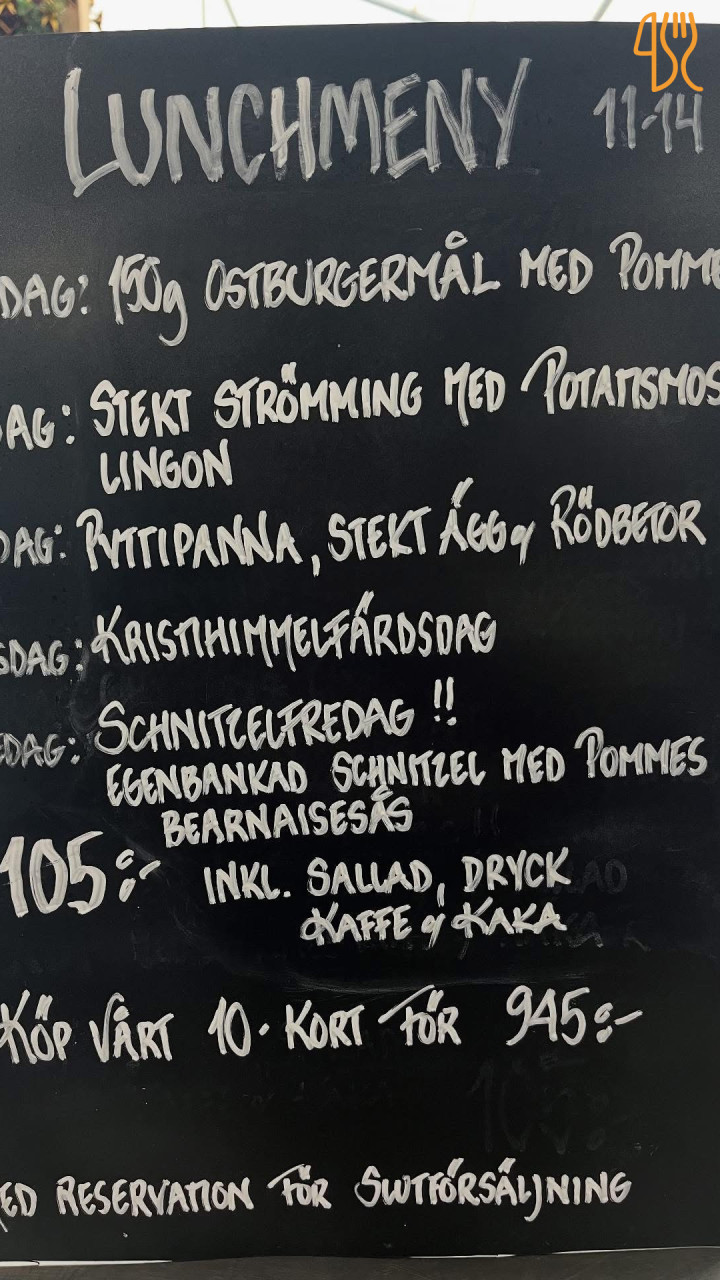 LUNCHMENY 11-14
DAG: 150g OSTBURGERMÅL MED POMME
AG: STEKT STRÖMMING MED POTATISMOS
LINGON
DAG: PYTTIPANNA, STEKT ÄGG & RÖDBETOR
SDAG: KRISTIHIMMELFÄRDSDAG
EDAG: SCHNITZELFREDAG !!
EGENBANKAD SCHNITZEL MED POMMES
BEARNAISESÅS
105:- INKL. SALLAD, DRYCK
KAFFE & KAKA
KÖP VÅRT 10-KORT FÖR 945:-
ED RESERVATION FÖR SLUTFÖRSÄLJNING